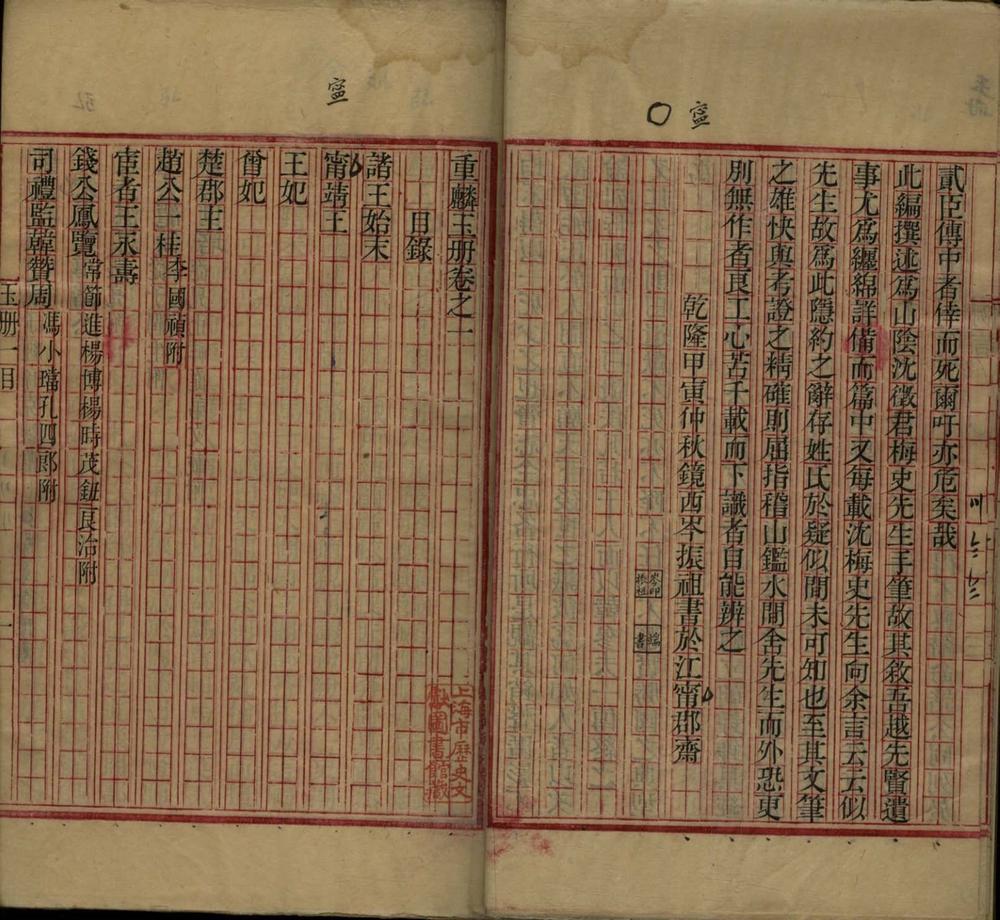 寍
貳臣傳中者倖而死爾吁亦危矣哉
此編撰述爲山陰沈徵君梅史先生手筆故其敘吾越先賢遺
事尤爲纏綿詳備而篇中又每載沈梅史先生向余言云云似
先生故爲此隱約之辭存姓氏於疑似間未可知也至其文筆
之雄快與考證之精確則屈指稽山鑑水間舍先生而外恐更
別無作者良工心苦千載而下識者自能辨之
乾隆甲寅仲秋鏡西岑振祖書於江甯郡齋
寍
重麟玉册卷之一
目錄
諸王始末
甯靖王
王妃
曾妃
楚郡主
趙公一桂李國禎附
宦者王永壽
錢公鳳覽常節進楊博楊時茂鈕良治附
司禮監韓贊周馮小璫孔四郎附
玉册一目 一
上海市歷史文
獻圖書館藏